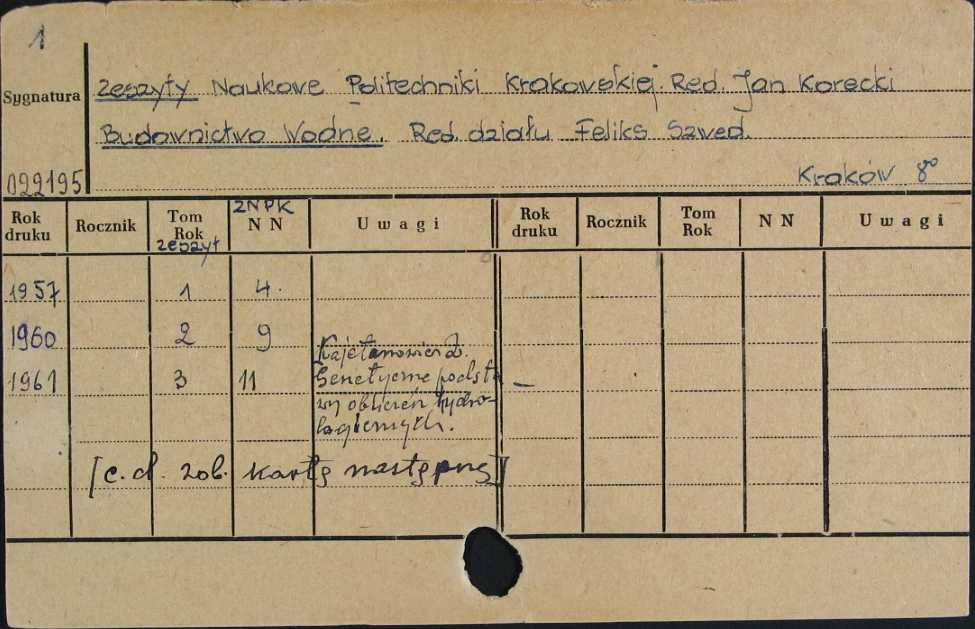 1
Sygnatura
Zeszyty Naukowe Politechniki Krakowskiej. Red. Jan Korecki
Budownictwo Wodne. Red. działu Feliks Szwed.
099195
Kraków 8°
Rok druku Rocznik Tom Rok zeszyt ZNPK N N Uwagi Rok druku Rocznik Tom Rok N N Uwagi
1957 1 4.
1960 2 9
1961 3 11 Kajetanowicz Z.
Genetyczne podsta-
wy obliczeń hydro-
logicznych.
[c.d. zob. kartę następną]